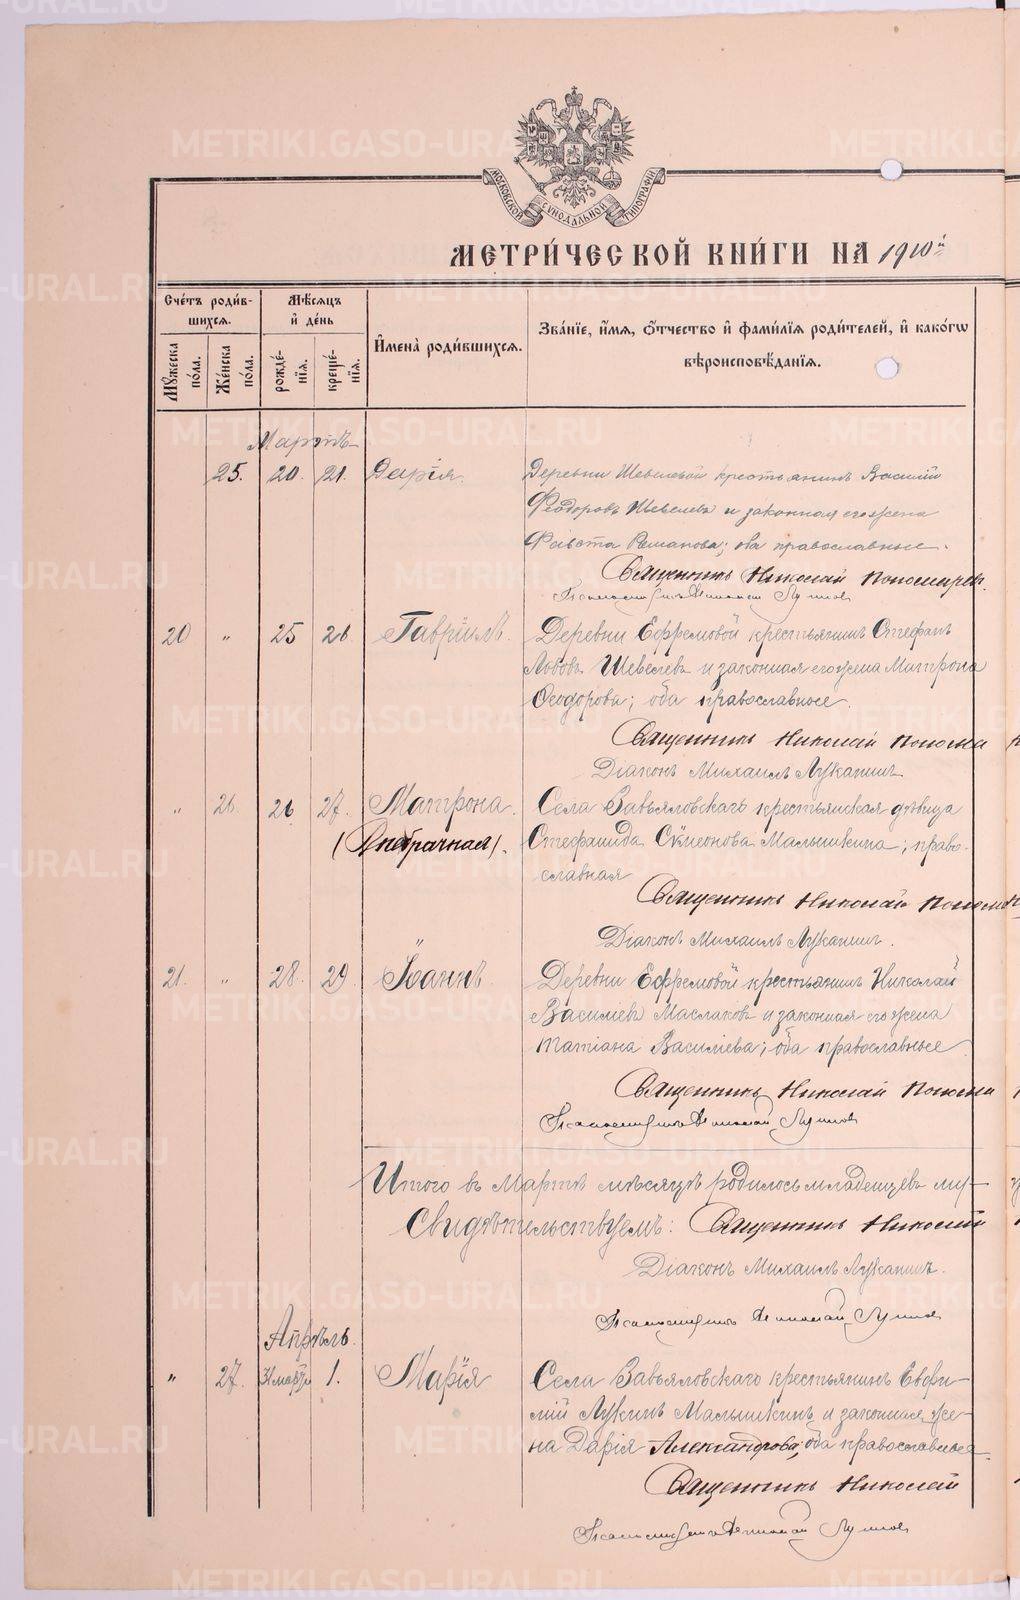 МОСКОВСКОЙ СѴНОДАЛЬНОЙ ТИПОГРАФІИ
МЕТРИ́ЧЕСКОЙ КНИ́ГИ НА 1910й
Счéтъ роди́вшихсѧ.
Мѣ́сѧцъ и҆ дéнь
И҆менà роди́вшихсѧ.
Звáнїе, и҆́мѧ, ѻ҆́тчество и҆ фами́лїѧ роди́телей, и҆ какóгѡ вѣроисповѣ́данїѧ.
Мꙋ́жеска пóла.
Жéнска пóла.
рождé-нїѧ.
крещé-нїѧ.
Мартъ
25. 20. 21. Дарія. Деревни Шевелевой крестьянинъ Василій
Ѳеодоровъ Шевелевъ и законная его жена
Фавста Романова; оба православные.
Священникъ Николай Пономарев
Псаломщикъ Николай
20 „ 25 26 Гавріилъ. Деревни Ефремовой крестьянинъ Стефанъ
Шевелевъ и законная его жена Матрона
Ѳеодорова; оба православные.
Священникъ Николай Понома
Діаконъ Михаилъ Лукапинъ
„ 26 26 27. Матрона. Села Завьяловскаго крестьянская дѣвица
(Внебрачная). Стефанида Сѵмеонова Малышкина; право-
славная
Священникъ Николай Понома
Діаконъ Михаилъ Лукапинъ.
21. „ 28. 29. Іоаннъ. Деревни Ефремовой крестьянинъ Николай
Василіевъ Маслаковъ и законная его жена
Татіана Василіева; оба православные
Священникъ Николай Понома
Псаломщикъ Николай
Итого въ Мартѣ мѣсяцѣ родилось младенцевъ му-
Свидѣтельствуемъ: Священникъ Николай
Діаконъ Михаилъ Лукапинъ.
Псаломщикъ Николай
Апрѣль.
„ 27. 31 марта 1. Марія Села Завьяловскаго крестьянинъ Евфи-
мій Лукинъ Малышкинъ и законная же-
на Дарія Александрова; оба православные
Священникъ Николай
Псаломщикъ Николай
METRIKI.GASO-URAL.RU